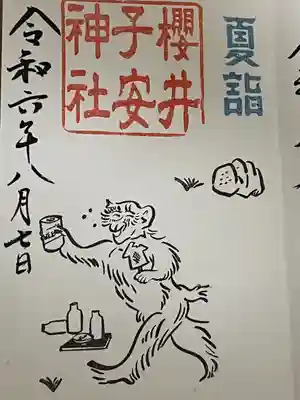 夏詣
櫻井
子安
神社
令和六年八月七日